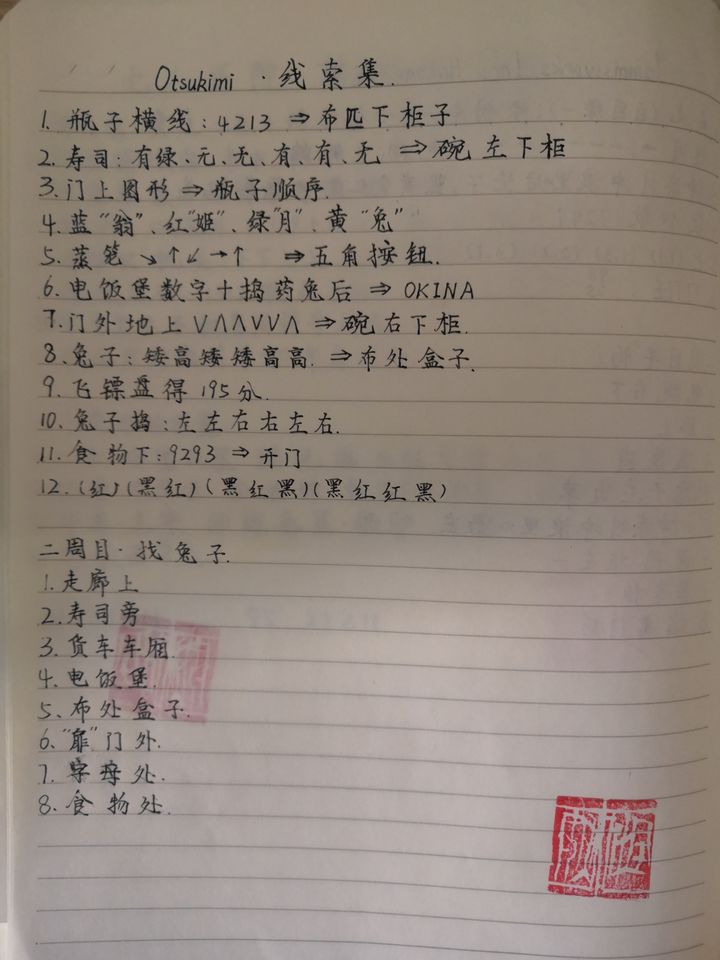 Otsukimi · 线索集.
1. 瓶子横线：4213 ⇒ 布匹下柜子
2. 寿司：有绿、无、无、有、有、无 ⇒ 碗左下柜
3. 门上图形 ⇒ 瓶子顺序.
4. 蓝“翁”、红“姬”、绿“月”、黄“兔”
5. 蒸笼 ↘↑↙→↑ ⇒ 五角按钮.
6. 电饭堡数字十捣药兔后 ⇒ OKINA
7. 门外地上 V∧∧VV∧ ⇒ 碗右下柜.
8. 兔子：矮高矮矮高高. ⇒ 布处盒子.
9. 飞镖盘得 195 分.
10. 兔子捣：左左右右左右.
11. 食物下：9293 ⇒ 开门
12. (红)(黑红)(黑红黑)(黑红红黑)
二周目 · 找兔子.
1. 走廊上
2. 寿司旁
3. 货车车厢.
4. 电饭堡.
5. 布处盒子.
6. “扉”门外.
7. 字母处.
8. 食物处.